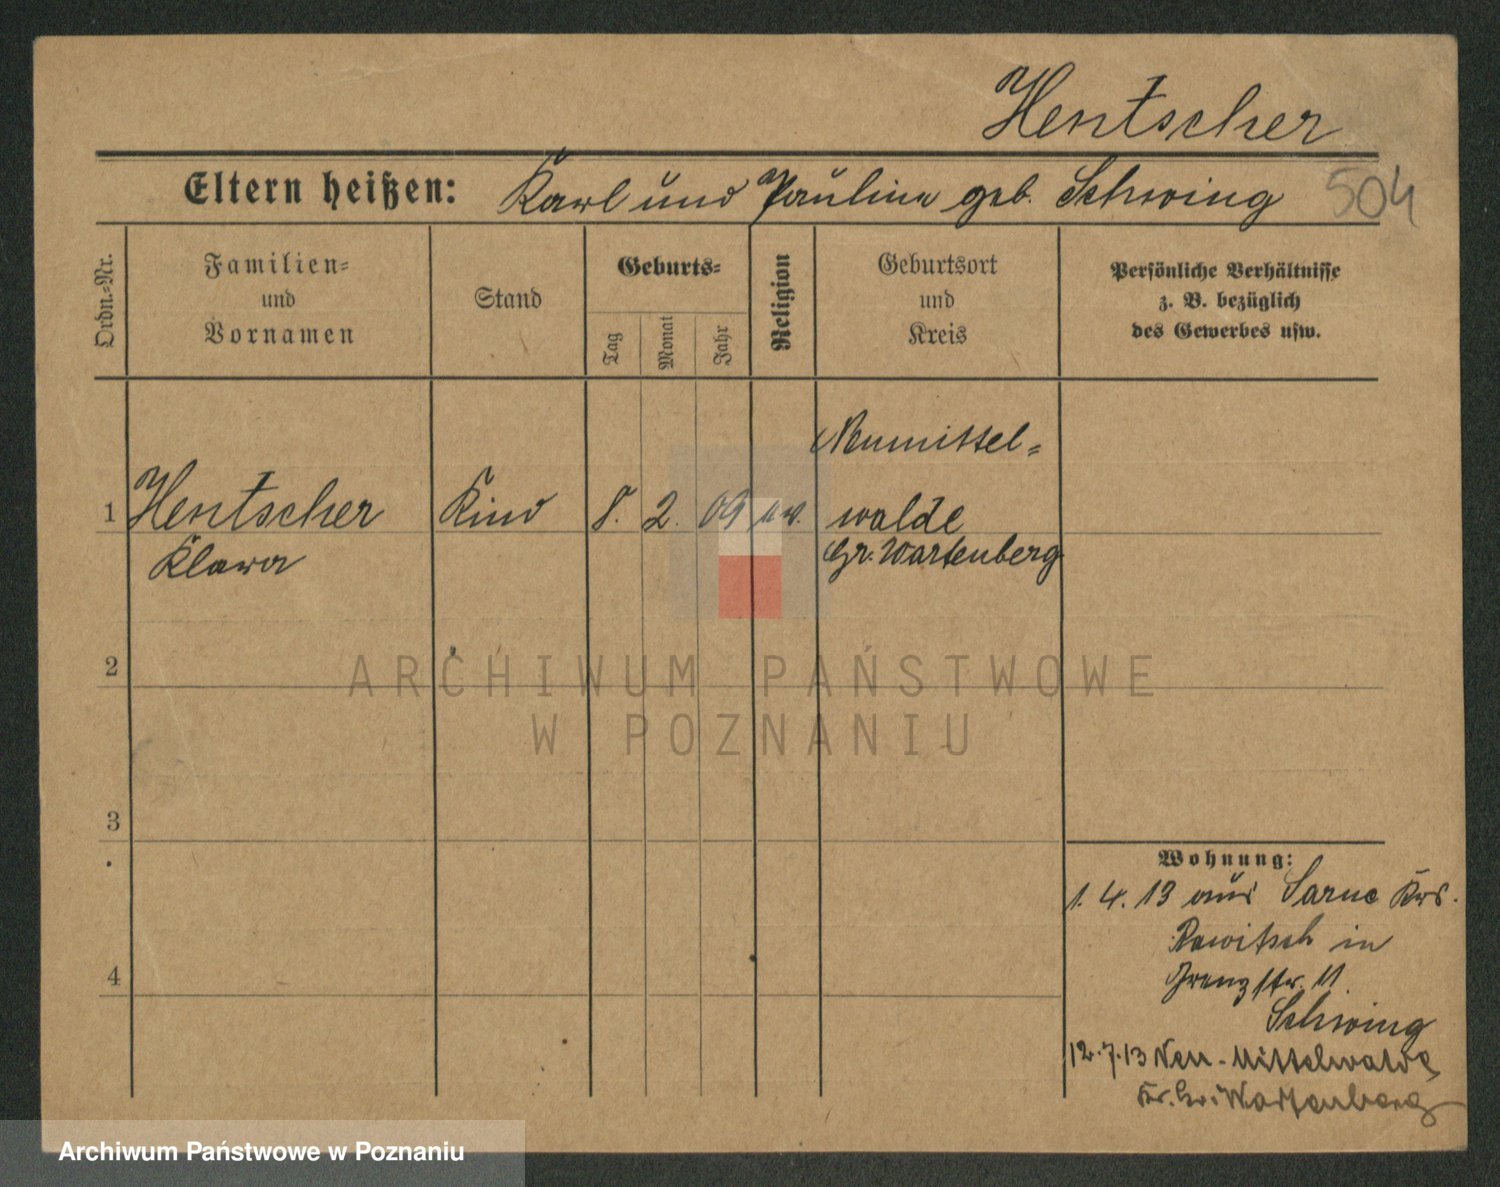 Hentscher
Eltern heißen: Karl und Pauline geb. Schwing 504
Ordn.-Nr.
Familien-
und
Vornamen
Stand
Geburts-
Tag
Monat
Jahr
Religion
Geburtsort
und
Kreis
Persönliche Verhältnisse
z. B. bezüglich
des Gewerbes usw.
Neumittel-
1 Hentscher Kind 8. 2. 09 ev. walde
Klara Gr. Wartenberg
2
3
4
Wohnung:
1. 4. 13 aus Sarne Krs.
Rawitsch in
Grenzstr. 11.
Schwing
12.7.13 Neu-Mittelwalde,
Kr. Gr. Wartenberg
ARCHIWUM PAŃSTWOWE
W POZNANIU
Archiwum Państwowe w Poznaniu